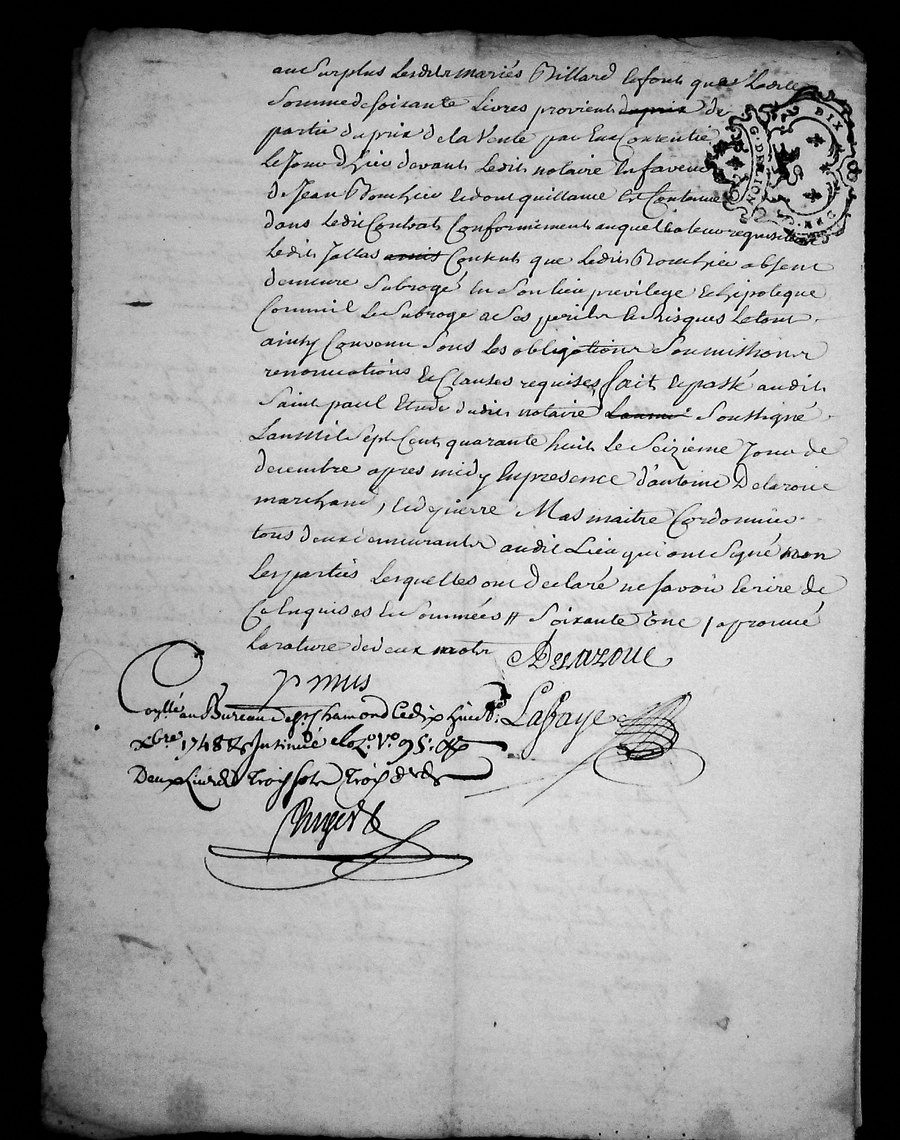 au Surplus Lesdits mariés Billard le font que Ladite
Somme de Soixante Livres provient du prix de
partie du prix de la Vente par Eux Consentie
Le Jour d'hier devant Ledit notaire En faveur
de Jean Et dont quittance Est Contenue
dans Ledit Contrat Conformement auquel
Ledit Jallas Consent que Ledit absent
demeure Subrogé En Son lieu privilege Et hipoteque
Comme il Le Subroge a Ses perils Et Risques Le tout
ainsy Convenu Sous Les obligations Soumissions
renonciations Et Clauses requises, fait Et passé audit
Saint paul Etude dudit notaire Soussigné
Lan mil Sept Cent quarante huit Le Seizieme Jour de
decembre apres midy En presence d'antoine Delaroüe
marchand, Et de pierre Mas maitre Cordonnier
tous deux demeurants audit Lieu qui ont Signé non
Les parties Lesquelles ont declaré ne Savoir Ecrire de
Ce Enquises Et Sommées // Soixante Une / aprouvé
La rature de deux mots
Delaroue
p mas
Lafaye
Conllé au Bureau de St Chamond Le dix huit
Xbre 1748 Insinué V° 95
Deux Livres Trois sols Trois ders
DIX
G. DE LION